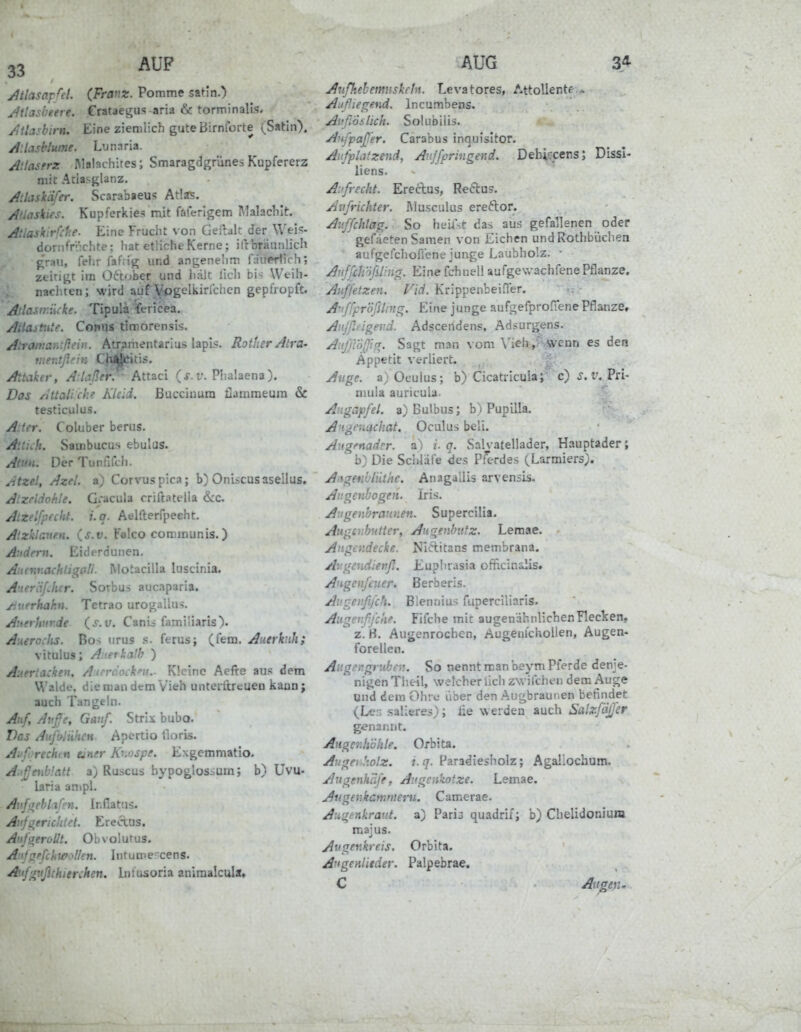 33 AUF
Atlasapfel. (Franz. Pomme satin.)
Atlasbeere. Crataegus aria & torminalis.
Atlasbirn. Eine ziemlich gute Birnforte (Satin).
Atlasblume. Lunaria.
Atlaserz Malachites; Smaragdgrünes Kupfererz
mit Atlasglanz.
Atlaskäfer. Scarabaeus Atlas.
Atlaskies. Kupferkies mit faferigem Malachit.
Atlaskirfche. Eine Frucht von Geftalt der Weis-
dornfrüchte; hat etliche Kerne; ift bräunlich
grau, fehr faftig und angenehm fäuerlich;
zeitigt im October und hält fich bis Weih-
nachten; wird auf Vogelkirfchen gepfropft.
Atlasmücke. Tipula fericea.
Atlastute. Conus timorensis.
Atramantftein. Atramentarius lapis. Rother Atra-
mentftein Chalcitis.
Attaker, Atlaßer. Attaci (s. v. Phalaena).
Das Attalifche Kleid. Buccinum flammeum &
testiculus.
Atter. Coluber berus.
Attich. Sambucus ebulus.
Atun. Der Tunfifch.
Atzel, Azel. a) Corvus pica; b) Oniscus asellus.
Atzeldohle. Gracula criftatella &c.
Atzelfpecht. i. q. Aelfterfpecht.
Atzklauen. (s. v. Falco communis.)
Audern. Eiderdunen.
Auennachtigall. Motacilla luscinia.
Aueräfcher. Sorbus aucaparia.
Auerhahn. Tetrao urogallus.
Auerhunde (s. v. Canis familiaris).
Auerochs. Bos urus s. ferus; (fem. Auerkuh;
vitulus; Auerkalb )
Auertacken, Auerdocken. Kleine Aefte aus dem
Walde, die man dem Vieh unterftreuen kann;
auch Tangeln.
Auf, Auffe, Gauf. Strix bubo.
Das Aufblühen Apertio floris.
Aufbrechen einer Knospe. Exgemmatio.
Auffenblatt a) Ruscus hypoglossum; b) Uvu-
laria ampl.
Aufgeblafen. Inflatus.
Aufgerichtet. Erectus.
Aufgerollt. Obvolutus.
Aufgefchwollen. Intumescens.
Aufgußthierchen. Infusoria animalcula.
AUG 34
Aufhebemuskeln. Levatores, Attollentes.
Aufliegend. Incumbens.
Auflöslich. Solubilis.
Aufpaffer. Carabus inquisitor.
Aufplatzend, Auffpringend. Dehiscens; Dissi-
liens.
Aufrecht. Erectus, Rectus.
Aufrichter. Musculus erector.
Auffchlag. So heifst das aus gefallenen oder
gefäeten Samen von Eichen und Rothbüchen
aufgefchoffene junge Laubholz.
Auffchößling. Eine fchnell aufgewachfene Pflanze.
Auffetzen. Vid. Krippenbeiffer.
Auffprößling. Eine junge aufgefproffene Pflanze.
Auffteigend. Adscendens, Adsurgens.
Aufftößig. Sagt man vom Vieh, wenn es den
Appetit verliert.
Auge. a) Oculus; b) Cicatricula; c) s. v. Pri-
mula auricula.
Augapfel. a) Bulbus; b) Pupilla.
Augenachat. Oculus beli.
Augenader. a) i. q. Salvatellader, Hauptader;
b) Die Schläfe des Pferdes (Larmiers).
Augenblüthe. Anagallis arvensis.
Augenbogen. Iris.
Augenbraunen. Supercilia.
Augenbutter, Augenbutz. Lemae.
Augendecke. Nictitans membrana.
Augendienft. Euphrasia officinalis.
Augenfeuer. Berberis.
Augenfifch. Blennius fuperciliaris.
Augenfifche. Fifche mit augenähnlichen Flecken,
z. B. Augenrochen, Augenfchollen, Augen-
forellen.
Augengruben. So nennt man beym Pferde denje-
nigen Theil, welcher fich zwifchen dem Auge
und dem Ohre über den Augbraunen befindet
(Les salieres); fie werden auch Salzfäffer
genannt.
Augenhöhle. Orbita.
Augenholz. i. q. Paradiesholz; Agallochum.
Augenkäfe, Augenkotze. Lemae.
Augenkammern. Camerae.
Augenkraut. a) Paris quadrif; b) Chelidonium
majus.
Augenkreis. Orbita.
Augenlieder. Palpebrae.
C Augen-